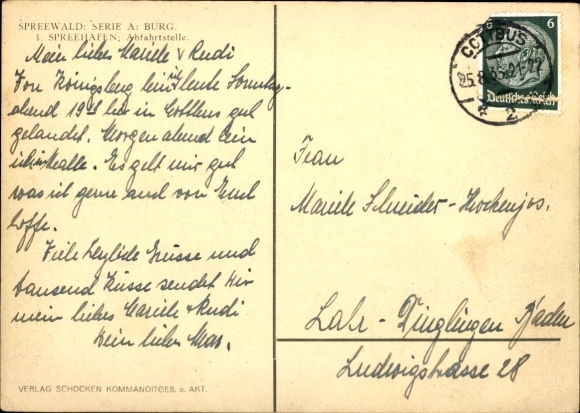 SPREEWALD: SERIE A: BURG.
1. SPREEHAFEN, Abfahrtstelle.
Mein liebes Mariele & Rudi
Von Königsberg bin ich heute Sonntag-
abend 19 hier in Cottbus gut
gelandet. Morgen abend bin
ich in Halle. Es geht mir gut
was ich gerne auch von Euch
hoffe.
Viele herzliche Grüsse und
tausend Küsse sendet Dir
mein liebes Mariele & Rudi
Dein lieber Max.
VERLAG SCHOCKEN KOMMANDITGES. a. AKT.
6 6
Deutsches Reich
COTTBUS
25.8.35.21-22
* 2
Frau
Mariele Schneider-Hockenjos.
Lahr-Dinglingen Baden
Ludwigstrasse 28